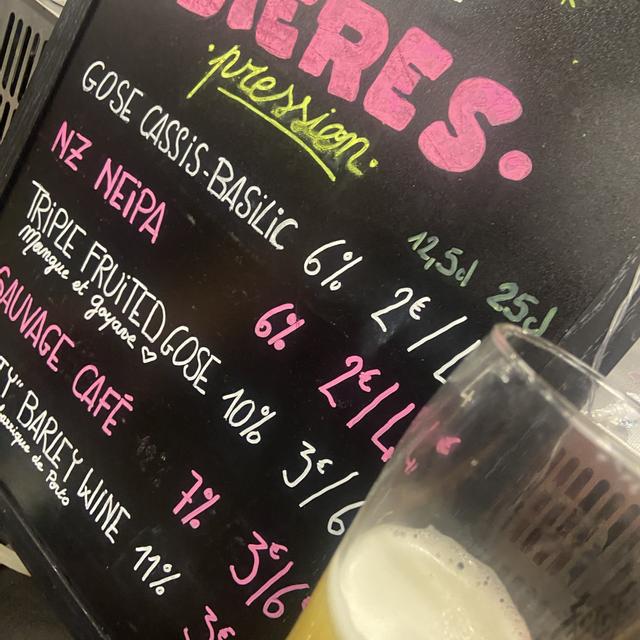 BIERES.
pression.
12,5cl 25cl
GOSE CASSIS-BASILIC 6% 2€/
NZ NEIPA 6% 2€/
TRIPLE FRUITED GOSE 10% 3€/6
Mangue et goyave ♡
SAUVAGE CAFÉ 7% 3€/6€
BARLEY WINE 11% 3€
barrique de Porto